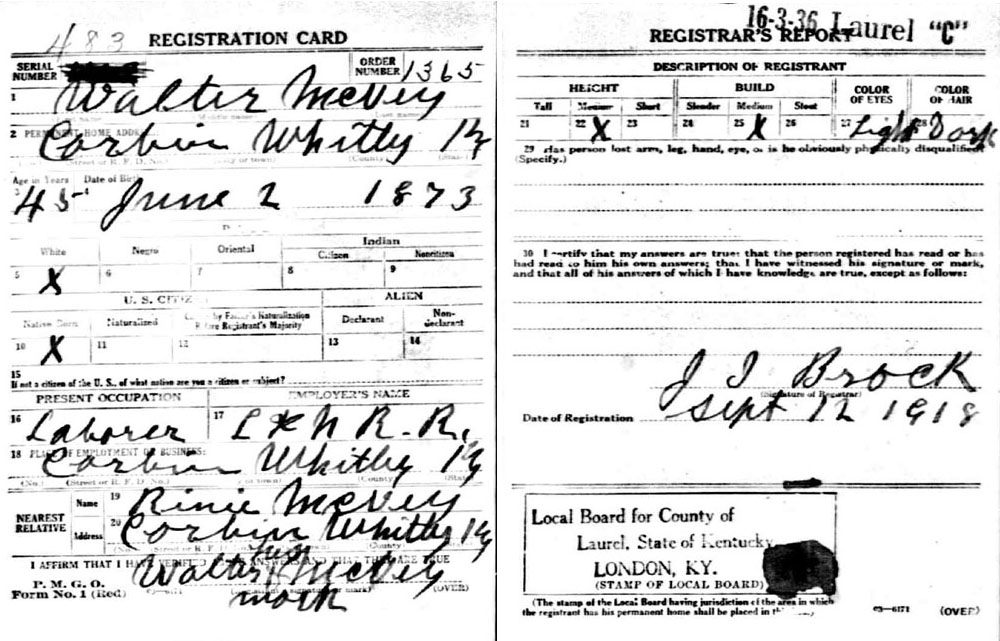 483 REGISTRATION CARD
SERIAL NUMBER ORDER NUMBER 1365
1 Walter McVey
2 PERMANENT HOME ADDRESS
Corbin Whitly Ky
(Street or R. F. D. No.) (City or town) (County) (State)
Age in Years Date of Birth
3 45 4 June 2 1873
White Negro Oriental Indian
Citizen Noncitizen
5 X 6 7 8 9
U. S. CITIZ ALIEN
Native Born Naturalized by Father's Naturalization Before Registrant's Majority Declarant Non-declarant
10 X 11 12 13 14
15
If not a citizen of the U. S., of what nation are you a citizen or subject?
PRESENT OCCUPATION EMPLOYER'S NAME
16 Laborer 17 L & N R. R.
18 PLACE OF EMPLOYMENT OR BUSINESS:
Corbin Whitly Ky
(No.) (Street or R. F. D. No.) (City or town) (County) (State)
NEAREST RELATIVE Name 19 Rinie McVey
Address 20 Corbin Whitly Ky
I AFFIRM THAT I HAVE VERIFIED ANSWERS AND THAT THEY ARE TRUE
his
P. M. G. O. Walter X McVey
Form No. 1 (Red) 03-6171 (OVER)
mark
16-3-36 Laurel "C"
REGISTRAR'S REPORT
DESCRIPTION OF REGISTRANT
HEIGHT BUILD COLOR OF EYES COLOR OF HAIR
Tall Medium Short Slender Medium Stout
21 22 X 23 24 25 X 26 27 Light 28 Dark
29 Has person lost arm, leg, hand, eye, or is he obviously physically disqualified?
(Specify.)
30 I certify that my answers are true; that the person registered has read or has
had read to him his own answers; that I have witnessed his signature or mark,
and that all of his answers of which I have knowledge are true, except as follows:
J J Brock
(Signature of Registrar)
Date of Registration Sept 12 1918
Local Board for County of
Laurel, State of Kentucky
LONDON, KY.
(STAMP OF LOCAL BOARD)
(The stamp of the Local Board having jurisdiction of the area in which
the registrant has his permanent home shall be placed in
03-6171 (OVER)